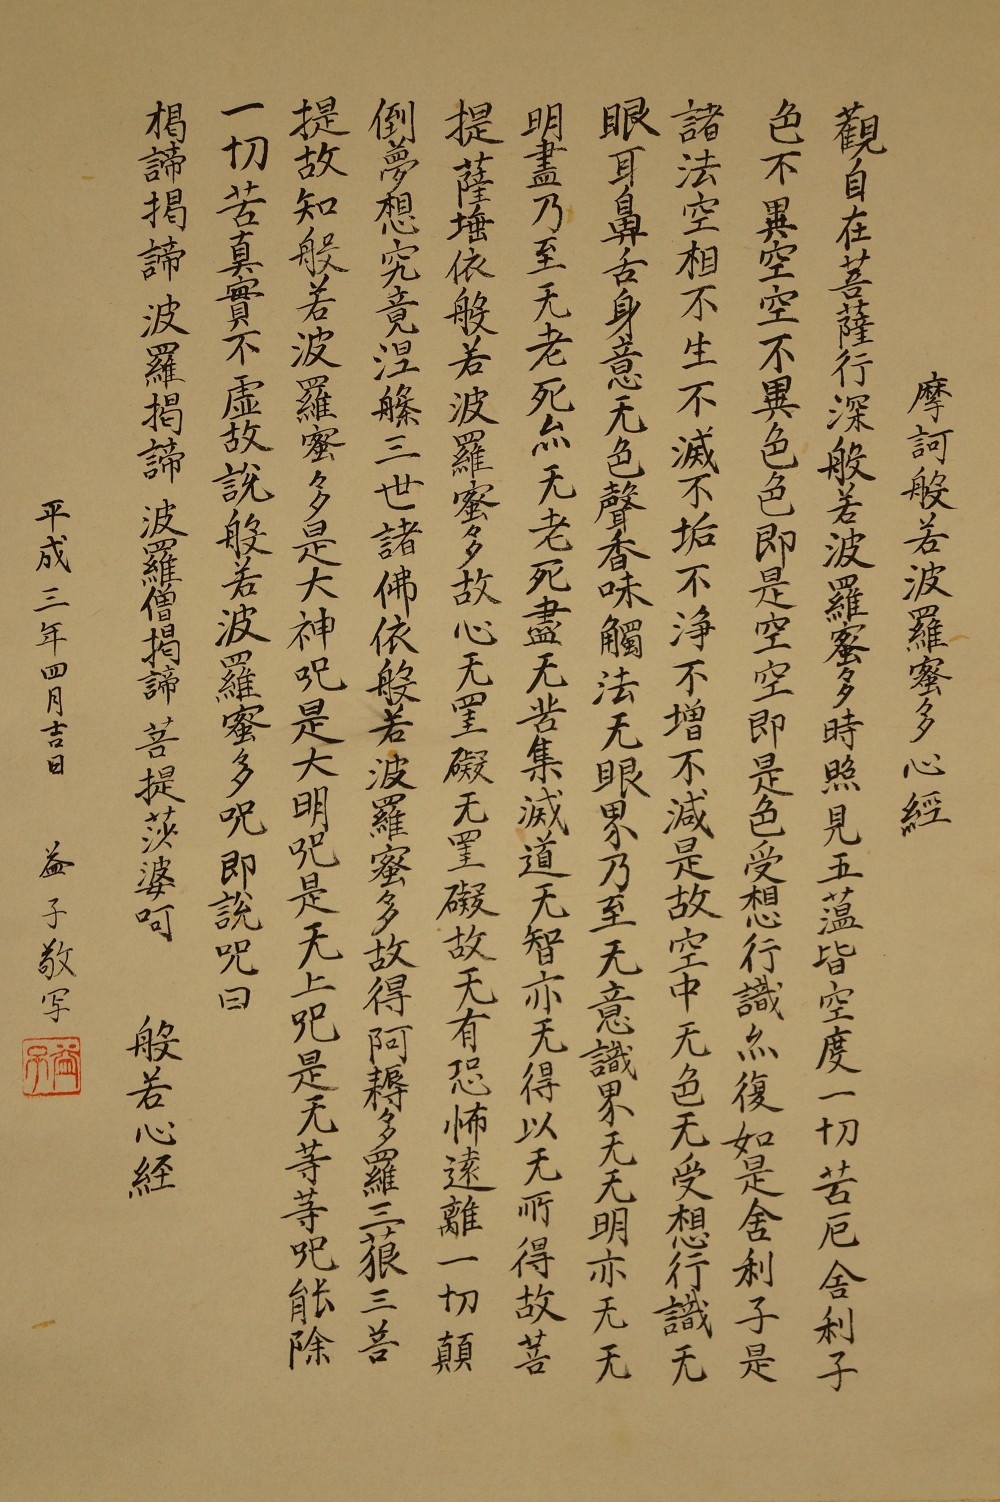 摩訶般若波羅蜜多心經
觀自在菩薩行深般若波羅蜜多時照見五蒀皆空度一切苦厄舎利子
色不異空空不異色色即是空空即是色受想行識亦復如是舎利子是
諸法空相不生不滅不垢不浄不増不減是故空中无色无受想行識无
眼耳鼻舌身意无色聲香味觸法无眼界乃至无意識界无无明亦无无
明盡乃至无老死亦无老死盡无苦集滅道无智亦无得以无所得故菩
提薩埵依般若波羅蜜多故心无罣礙无罣礙故无有恐怖遠離一切顛
倒夢想究竟涅槃三世諸佛依般若波羅蜜多故得阿耨多羅三藐三菩
提故知般若波羅蜜多是大神呪是大明呪是无上呪是无等等呪能除
一切苦真實不虛故説般若波羅蜜多呪即説呪曰
掲諦掲諦 波羅掲諦 波羅僧掲諦 菩提莎婆呵 般若心経
平成三年四月吉日 益子敬写
益子